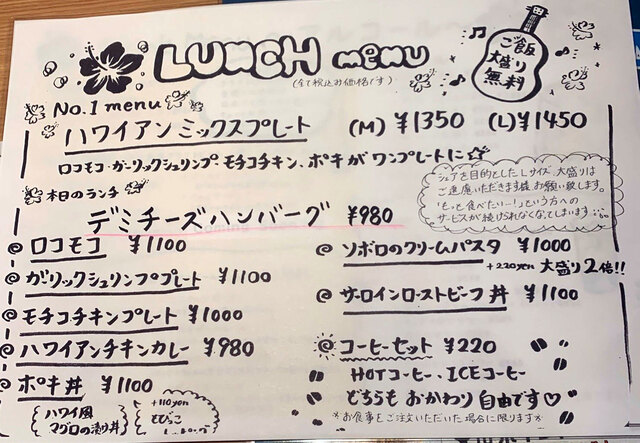 LUNCH menu
(全て税込み価格です)
ご飯
大盛り
無料
No.1 menu
ハワイアンミックスプレート (M) ¥1350 (L) ¥1450
ロコモコ・ガーリックシュリンプ、モチコチキン、ポキがワンプレートに☆
シェアを目的としたLサイズ、大盛りは
ご遠慮いただきます様お願い致します。
"もっと食べたいー!"という方への
サービスが続けられなくなてしまいます…
本日のランチ
デミチーズハンバーグ ¥980
ロコモコ ¥1100
ガーリックシュリンププレート ¥1100
モチコチキンプレート ¥1000
ハワイアンチキンカレー ¥980
ポキ丼 ¥1100
ハワイ風
マグロの漬け丼
+110yen
もびっこ
ソボロのクリームパスタ ¥1000
+220yen 大盛り2倍!!
サーロインローストビーフ丼 ¥1100
コーヒーセット ¥220
HOTコーヒー、ICEコーヒー
どちらも おかわり 自由です♡
※お食事をご注文いただいた場合に限ります※